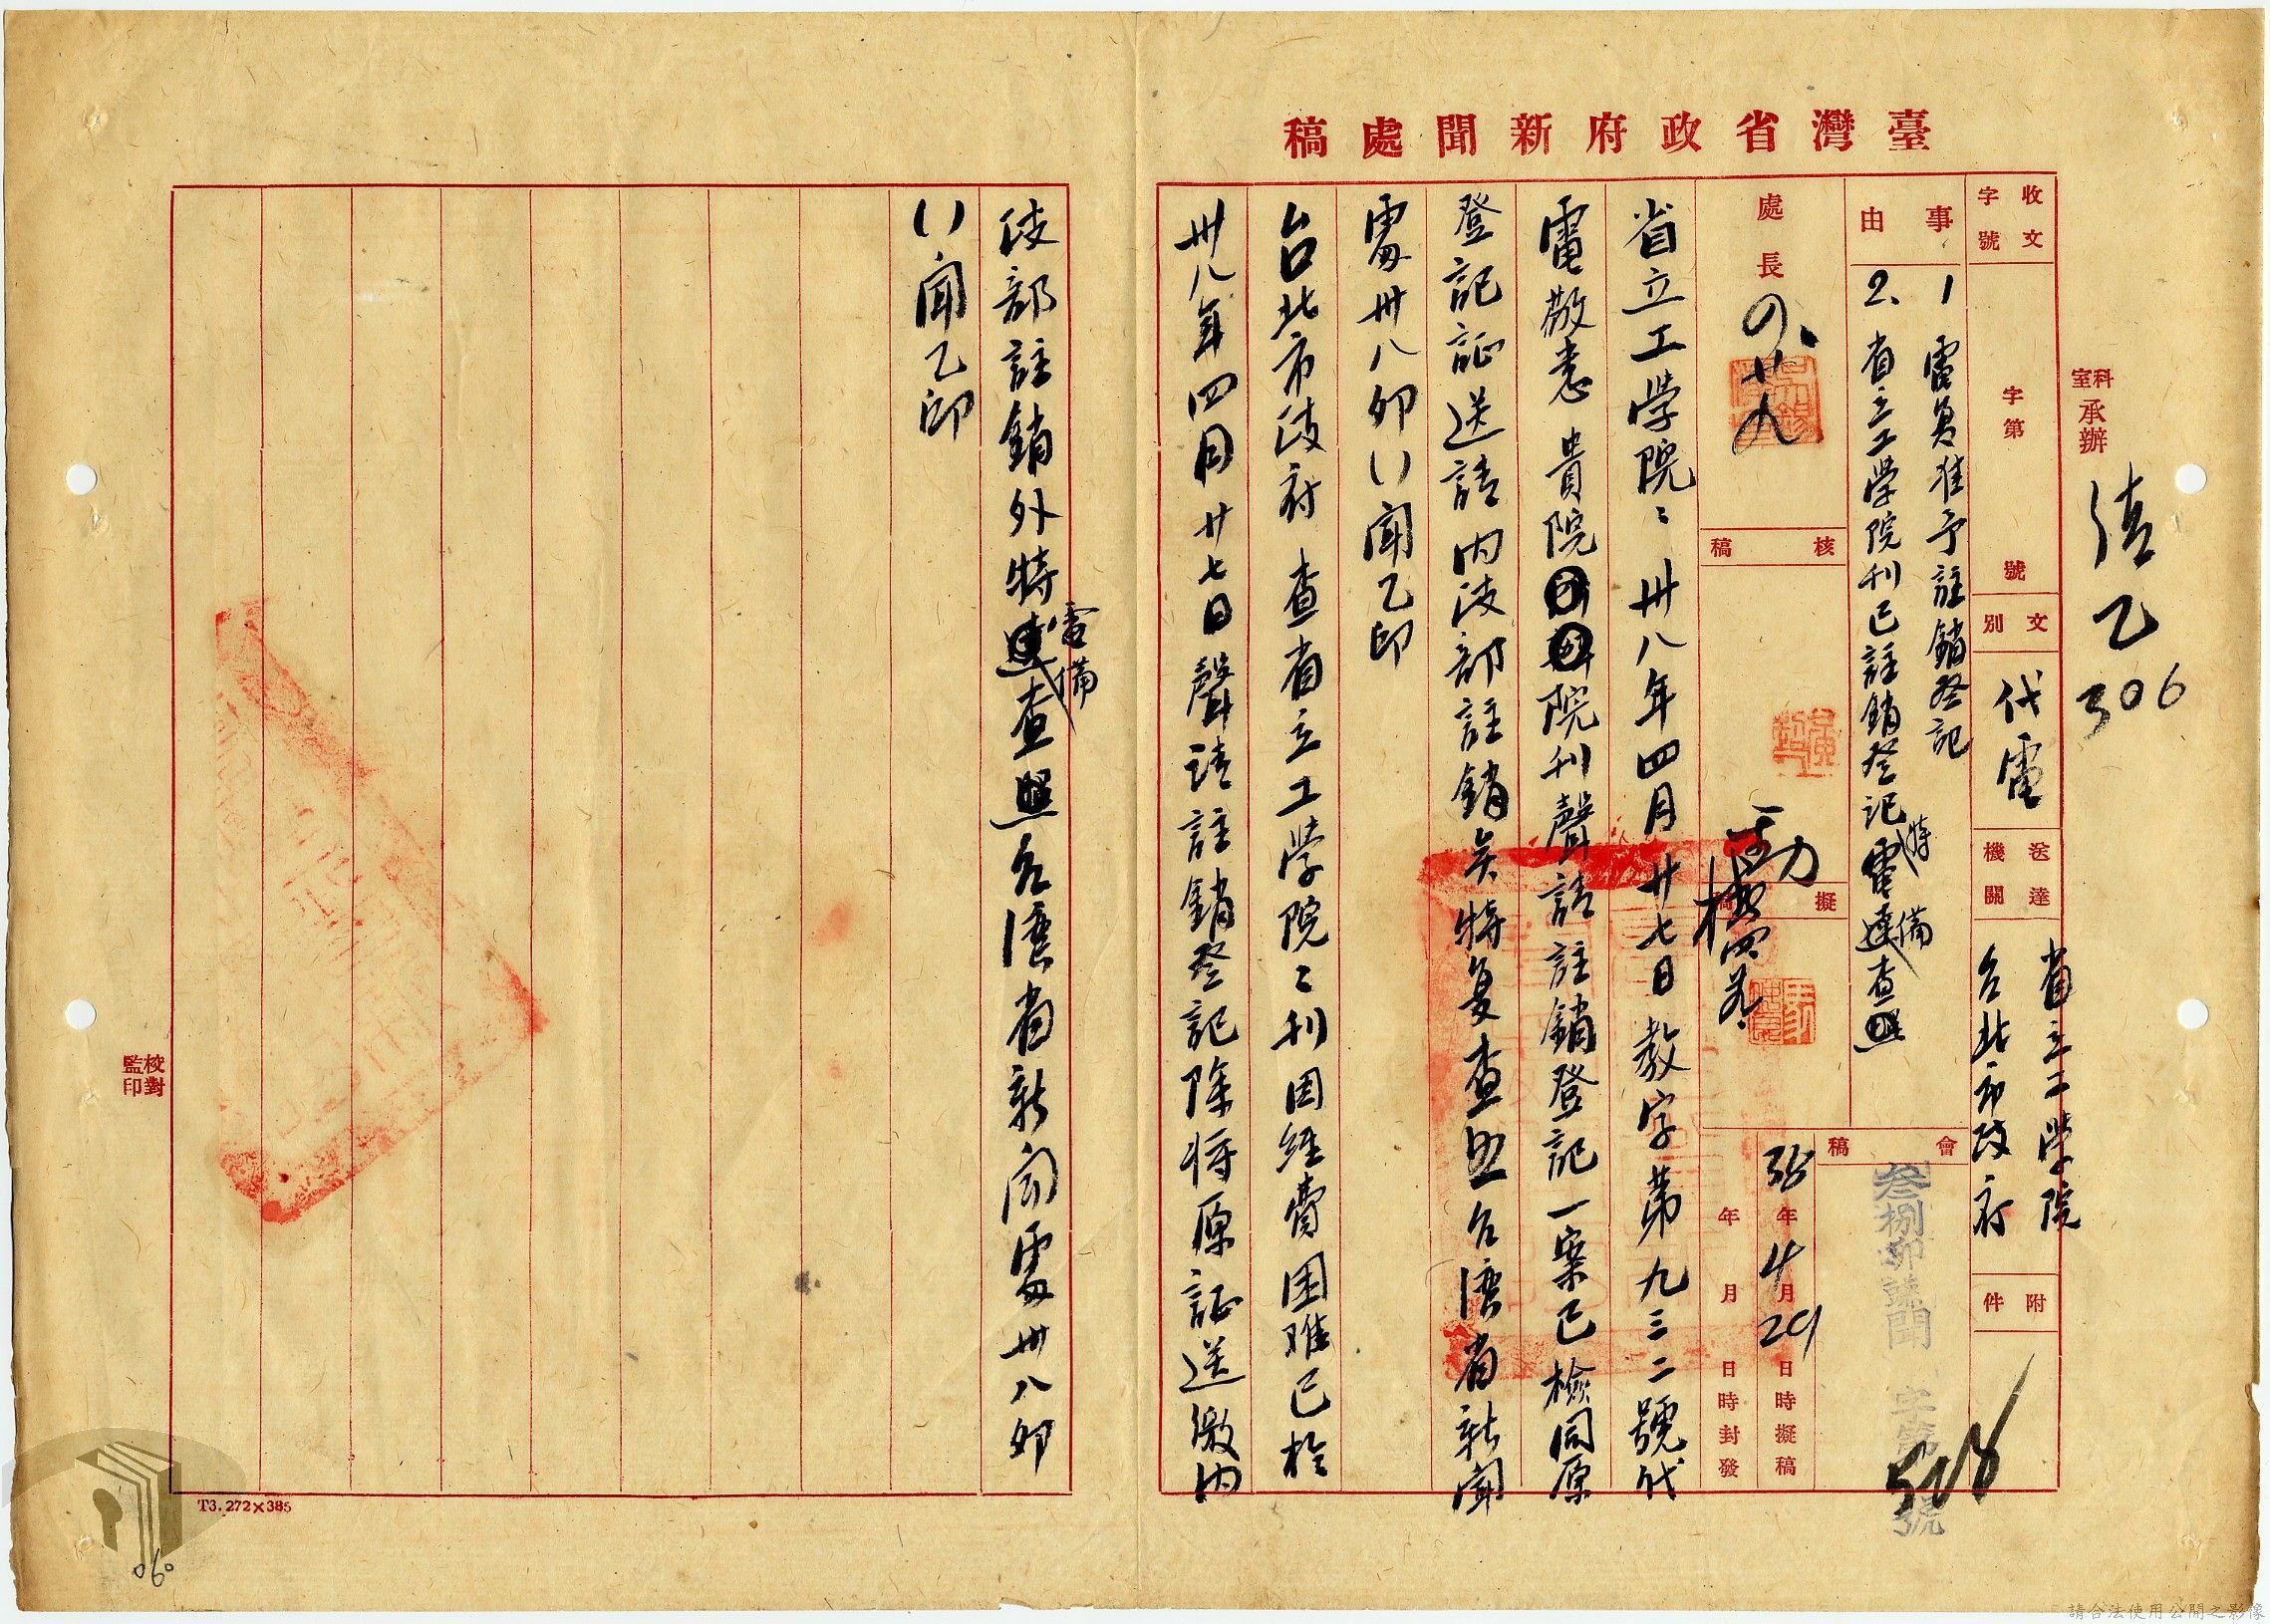 臺灣省政府新聞處稿
科室承辦
乙306
收文字號
字第 號
文別 代電
送達機關 省立工学院
台北市政府
附件
事由 1 電复准予註銷登記
2、省立工学院刊已註銷登記特電備查照
會稿
叁捌卯 聞 字第 號
處長
核稿
擬稿
38年4月29日時擬稿
年 月 日時封發
省立工学院：卅八年四月廿七日教字第九三二號代
電敬悉 貴院院刊聲請註銷登記一案已檢同原
登記証送請內政部註銷矣特复查照台湾省新聞
處卅八卯 聞乙印
台北市政府 查省立工学院院刊因經費困难已於
卅八年四月廿七日聲請註銷登記除将原証送繳內
政部註銷外特電備查照台湾省新聞處卅八卯
聞乙印
校對
監印
T3.272×385
060
請合法使用公開之影像